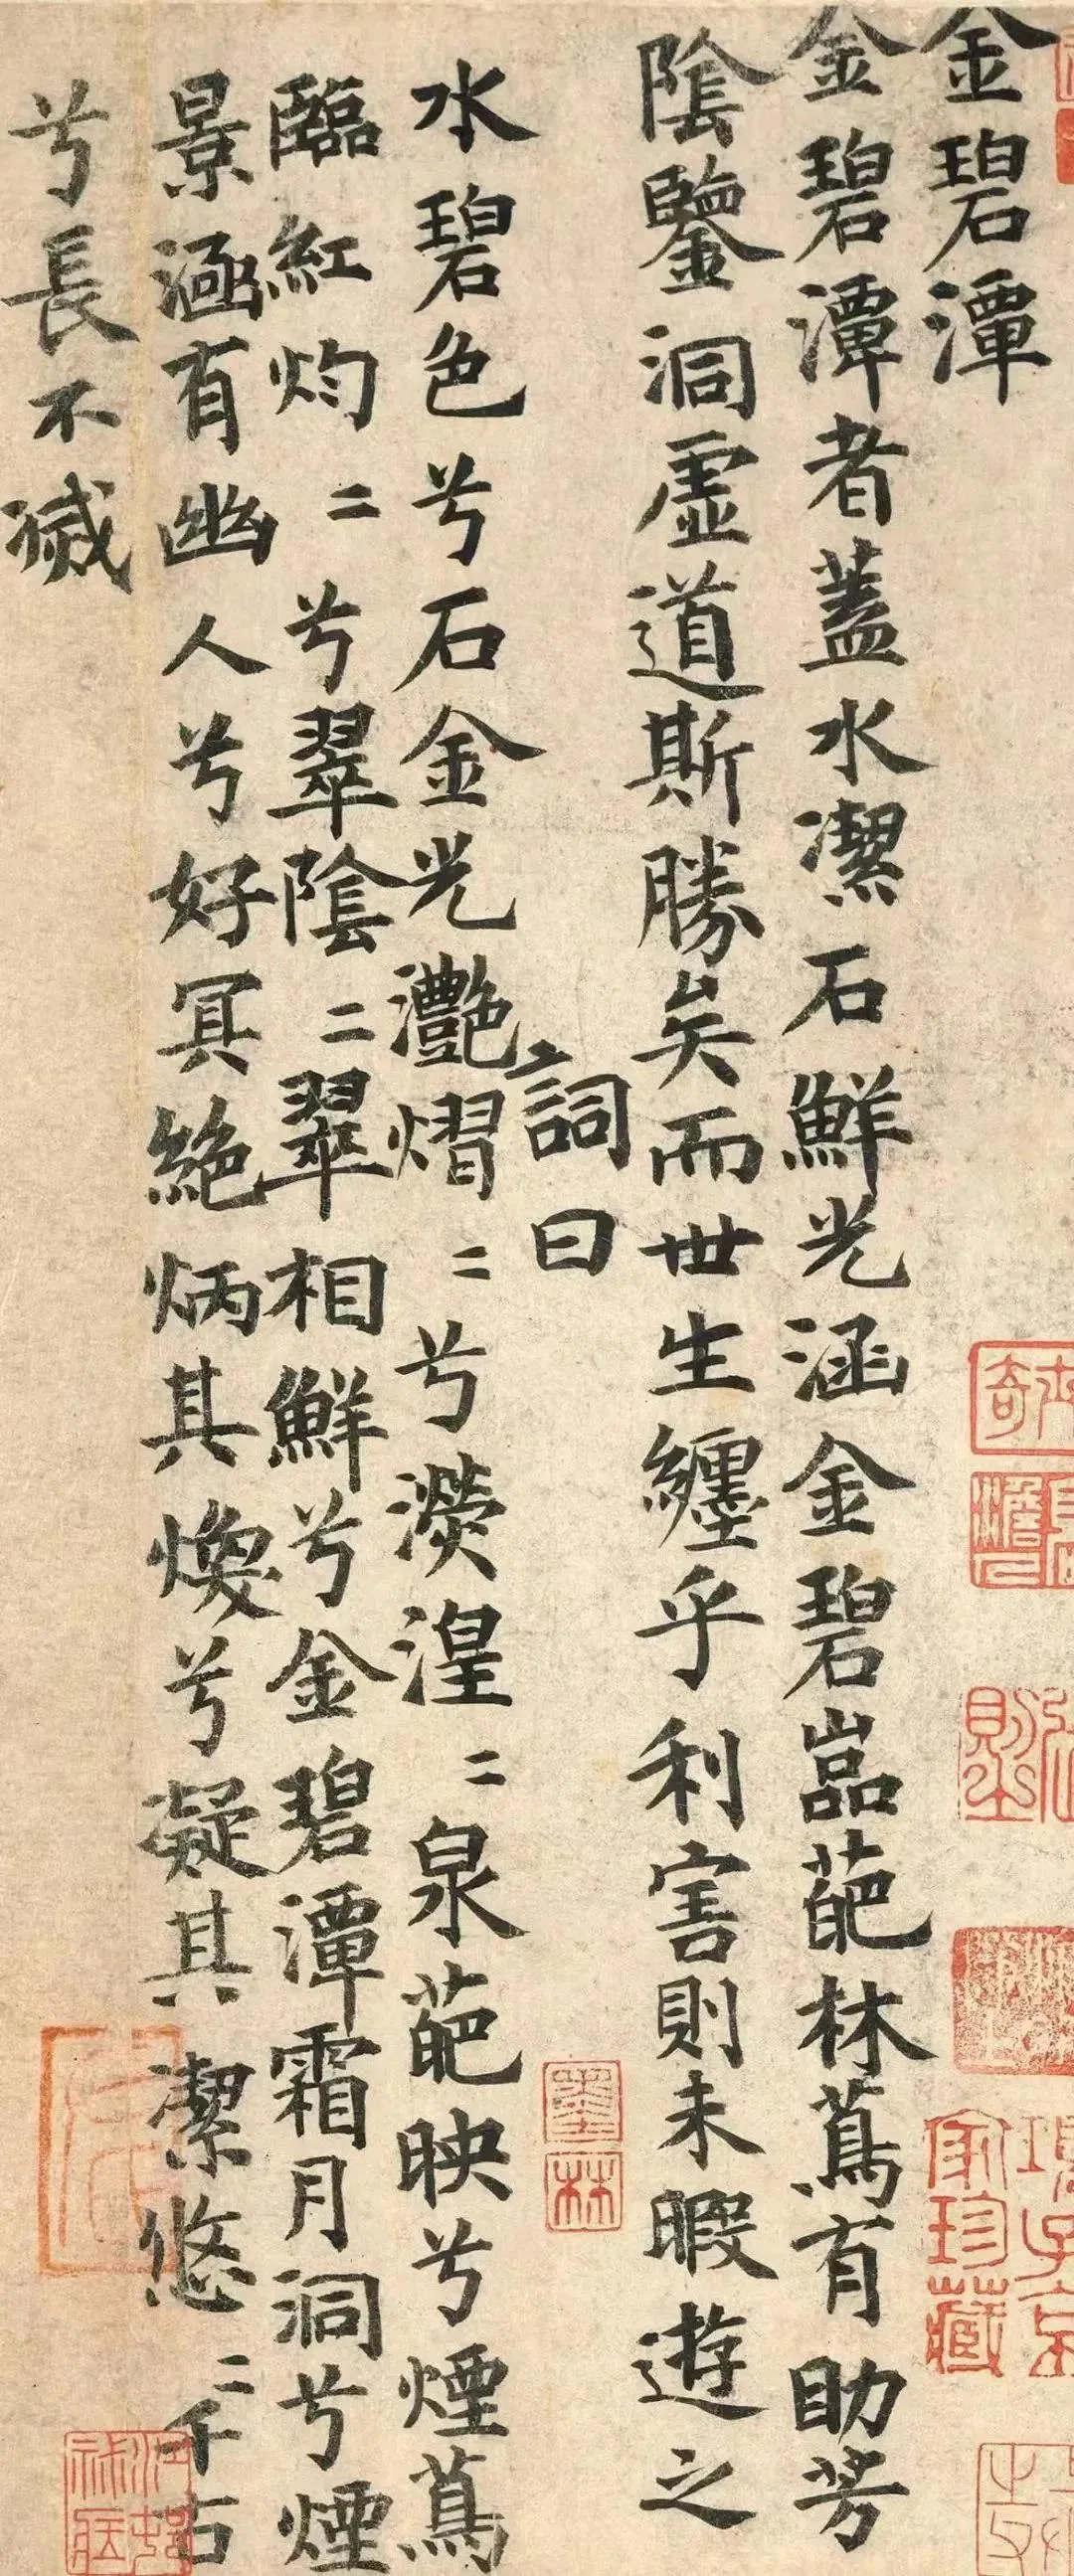 金碧潭
金碧潭者蓋水潔石鮮光涵金碧嵓葩林蔦有助芳
陰鑒洞虛道斯勝矣而世生纏乎利害則未暇遊之
詞曰
水碧色兮石金光灩熠〻兮濙湟〻泉葩映兮煙蔦
臨紅灼〻兮翠陰〻翠相鮮兮金碧潭霜月洞兮煙
景涵有幽人兮好冥絕炳其煥兮凝其潔悠〻千古
兮長不滅
墨林
項子京
家珍藏